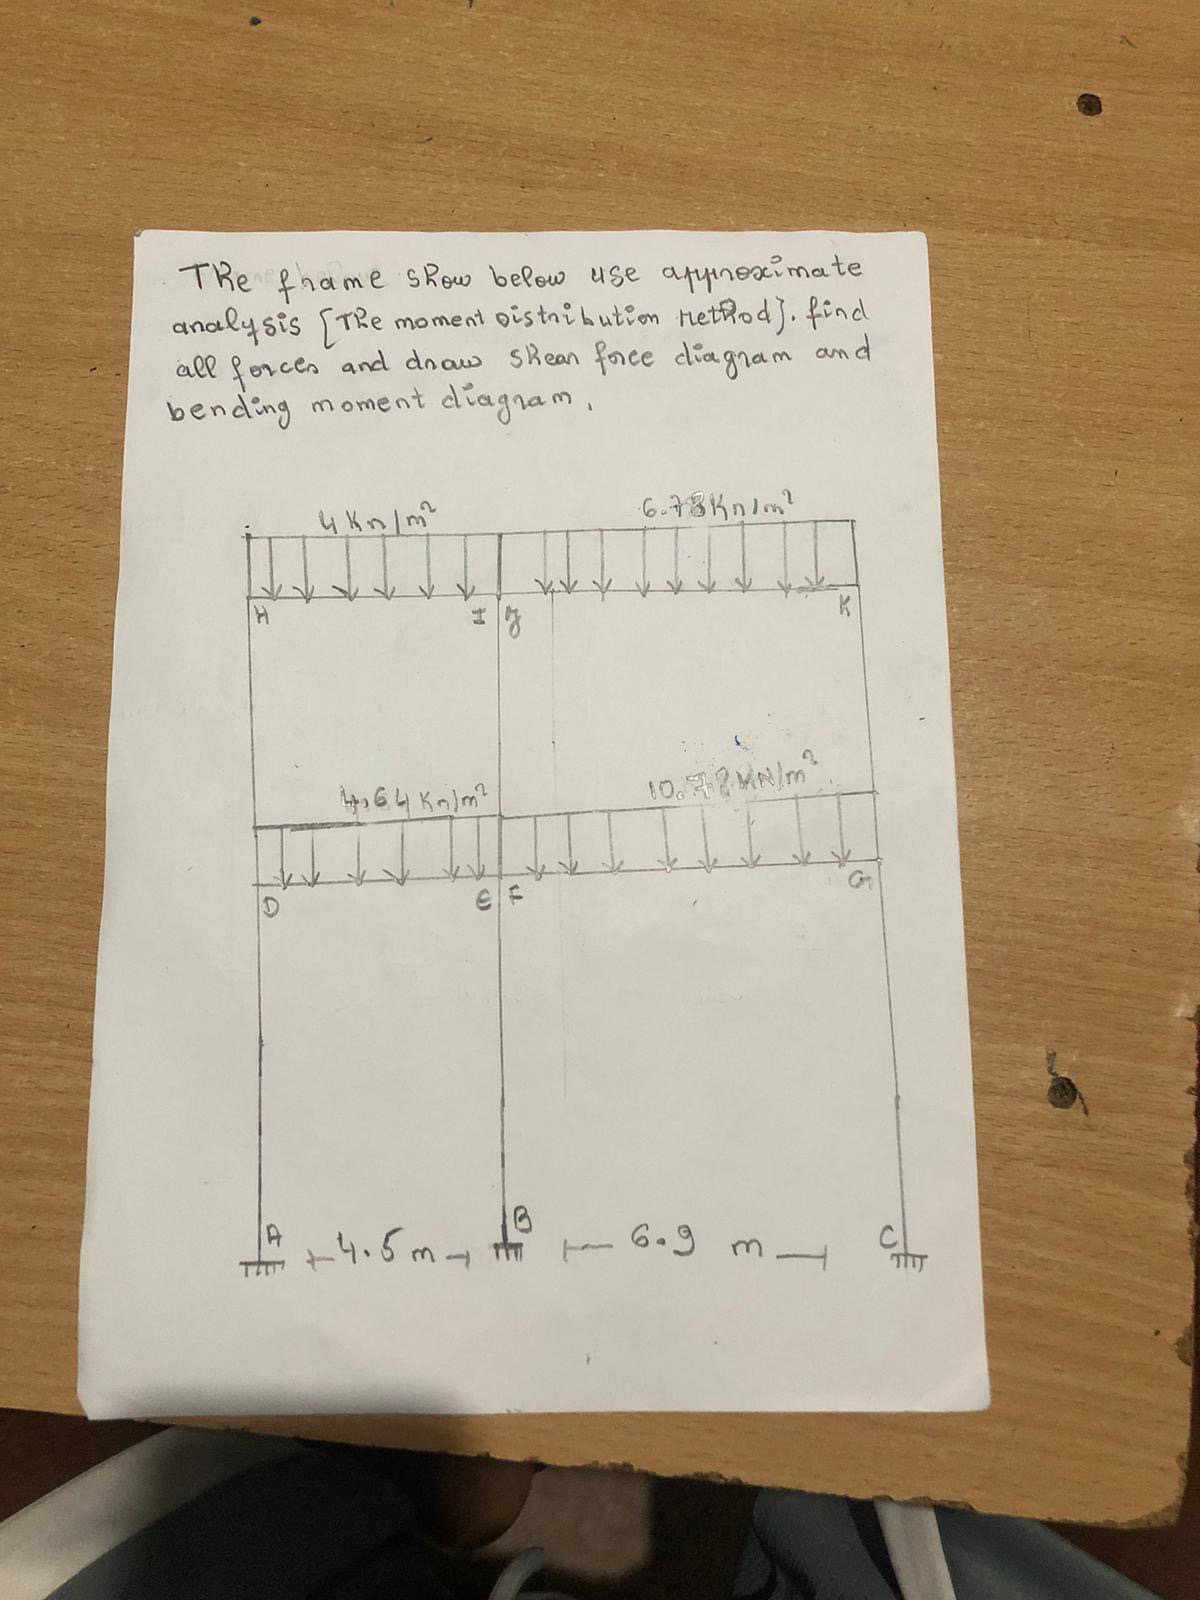 The frame show below use approximate
analysis [The moment Distribution Method]. find
all forces and draw shear force diagram and
bending moment diagram.
4 Kn/m²
6.75Kn/m²
H
I
J
K
4.64 Kn/m²
10.72 KN/m²
D
E
F
G
A
4.5 m
B
6.9 m
C